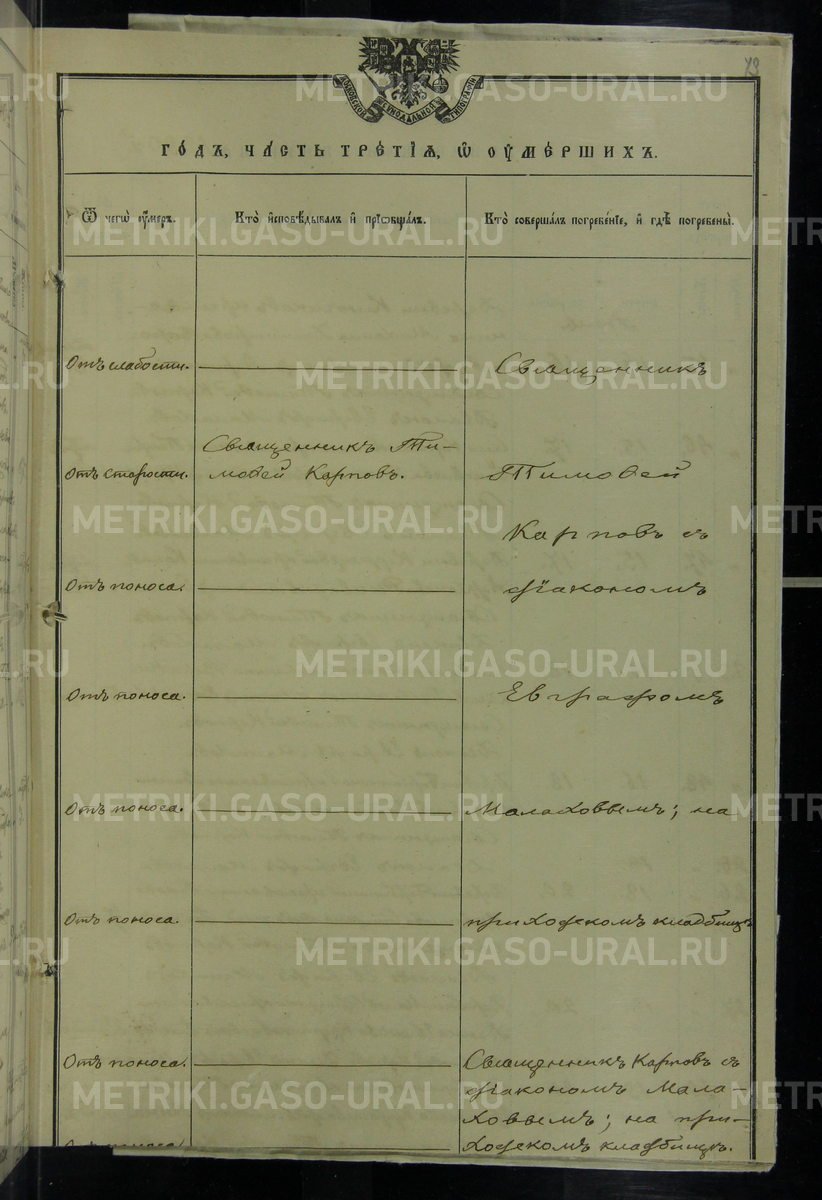 73
МОСКОВСКОЙ СѴНОДАЛЬНОЙ ТИПОГРАФІИ
ГО́ДЪ, ЧА́СТЬ ТРЕ́ТІѦ, Ѡ҆ ОУ҆МЕ́РШИХЪ.
Ѿ чегѡ̀ оу҆́меръ.
Кто̀ и҆сповѣ́дывалъ и҆ прїѡбща́лъ.
Кто̀ соверша́лъ погребе́нїе, и҆ гдѣ̀ погребены̀.
Отъ слабости.
Священникъ
Священникъ Ти-
Отъ старости.
моѳей Карповъ.
Тимоѳей
Карповъ съ
Отъ поноса.
діакономъ
Отъ поноса.
Евграфомъ
Отъ поноса.
Малаховымъ; на
Отъ поноса.
приходскомъ кладбищѣ.
Отъ поноса.
Священникъ Карповъ съ
діакономъ Мала-
ховымъ; на при-
ходскомъ кладбищѣ.
METRIKI.GASO-URAL.RU